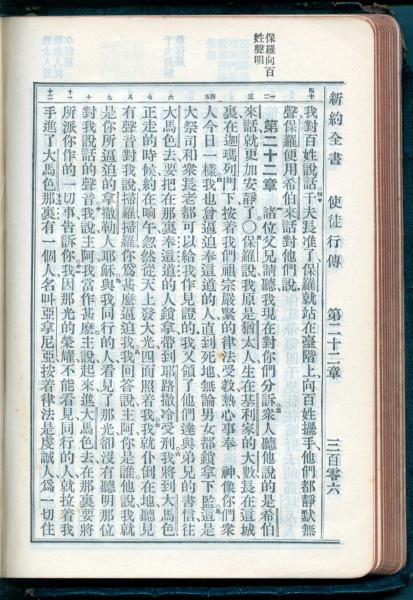 新約全書　使徒行傳　第二十二章　三百零六
保羅向百
姓聲明
我對百姓說話千夫長准了保羅就站在臺階上向百姓擺手他們都靜默無
聲保羅便用希伯來話對他們說
第二十二章　諸位父兄請聽我現在對你們分訴衆人聽他說的是希伯
來話就更加安靜了○保羅說我原是猶太人生在基利家的大數長在這城
裏在迦瑪列門下按着我們祖宗嚴緊的律法受教熱心事奉　神像你們衆
人今日一樣我也曾逼迫奉這道的人直到死地無論男女都鎖拿下監這是
大祭司和衆長老都可以給我作見證的我又領了他們達與弟兄的書信往
大馬色去要把在那裏奉這道的人鎖拿帶到耶路撒冷受刑我將到大馬色
正走的時候約在晌午忽然從天上發大光四面照着我我就仆倒在地聽見
有聲音對我說掃羅掃羅你爲甚麽逼迫我我回答說主阿你是誰他說我就
是你所逼迫的拿撒勒人耶穌與我同行的人看見了那光卻沒有聽明那位
對我說話的聲音我說主阿我當作甚麽主說起來進大馬色去在那裏要將
所派你作的一切事告訴你我因那光的榮耀不能看見同行的人就拉着我
手進了大馬色那裏有一個人名叫亞拿尼亞按着律法是虔誠人爲一切住